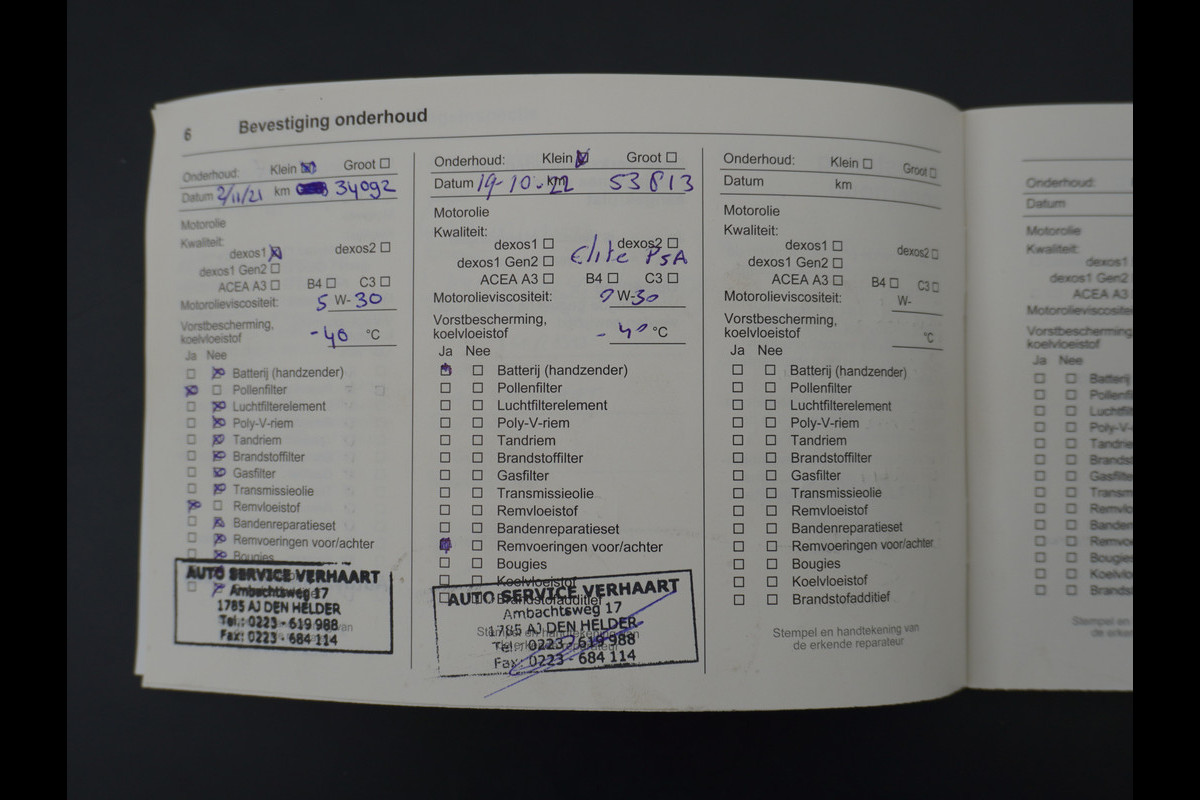 6 Bevestiging onderhoud
Onderhoud: Klein Groot
Datum 2/11/21 km 34092
Motorolie
Kwaliteit:
dexos1 dexos2
dexos1 Gen2
ACEA A3 B4 C3
Motorolieviscositeit: 5 W-30
Vorstbescherming,
koelvloeistof -40 °C
Ja Nee
Batterij (handzender)
Pollenfilter
Luchtfilterelement
Poly-V-riem
Tandriem
Brandstoffilter
Gasfilter
Transmissieolie
Remvloeistof
Bandenreparatieset
Remvoeringen voor/achter
Bougies
AUTO SERVICE VERHAART
Ambachtsweg 17
1785 AJ DEN HELDER
Tel.: 0223 - 619 988
Fax: 0223 - 684 114
Onderhoud: Klein Groot
Datum 19-10-22 km 53813
Motorolie
Kwaliteit:
dexos1 dexos2
Elite PSA
dexos1 Gen2
ACEA A3 B4 C3
Motorolieviscositeit: W-30
Vorstbescherming,
koelvloeistof -40 °C
Ja Nee
Batterij (handzender)
Pollenfilter
Luchtfilterelement
Poly-V-riem
Tandriem
Brandstoffilter
Gasfilter
Transmissieolie
Remvloeistof
Bandenreparatieset
Remvoeringen voor/achter
Bougies
Koelvloeistof
Brandstofadditief
AUTO SERVICE VERHAART
Ambachtsweg 17
1785 AJ DEN HELDER
Tel.: 0223 - 619 988
Fax: 0223 - 684 114
Stempel en handtekening van
Onderhoud: Klein Groot
Datum km
Motorolie
Kwaliteit:
dexos1 dexos2
dexos1 Gen2
ACEA A3 B4 C3
Motorolieviscositeit: W-
Vorstbescherming,
koelvloeistof °C
Ja Nee
Batterij (handzender)
Pollenfilter
Luchtfilterelement
Poly-V-riem
Tandriem
Brandstoffilter
Gasfilter
Transmissieolie
Remvloeistof
Bandenreparatieset
Remvoeringen voor/achter
Bougies
Koelvloeistof
Brandstofadditief
Stempel en handtekening van
de erkende reparateur
Onderhoud:
Datum
Motorolie
Kwaliteit:
dexos1
dexos1 Gen2
ACEA A3
Motorolieviscositeit
Vorstbescherming
koelvloeistof
Ja Nee
Batterij
Pollenf
Luchtfil
Poly-V-
Tandrie
Brandst
Gasfilte
Transm
Remvlo
Banden
Remvo
Bougies
Koelvlo
Brands
Stempel e
de erken